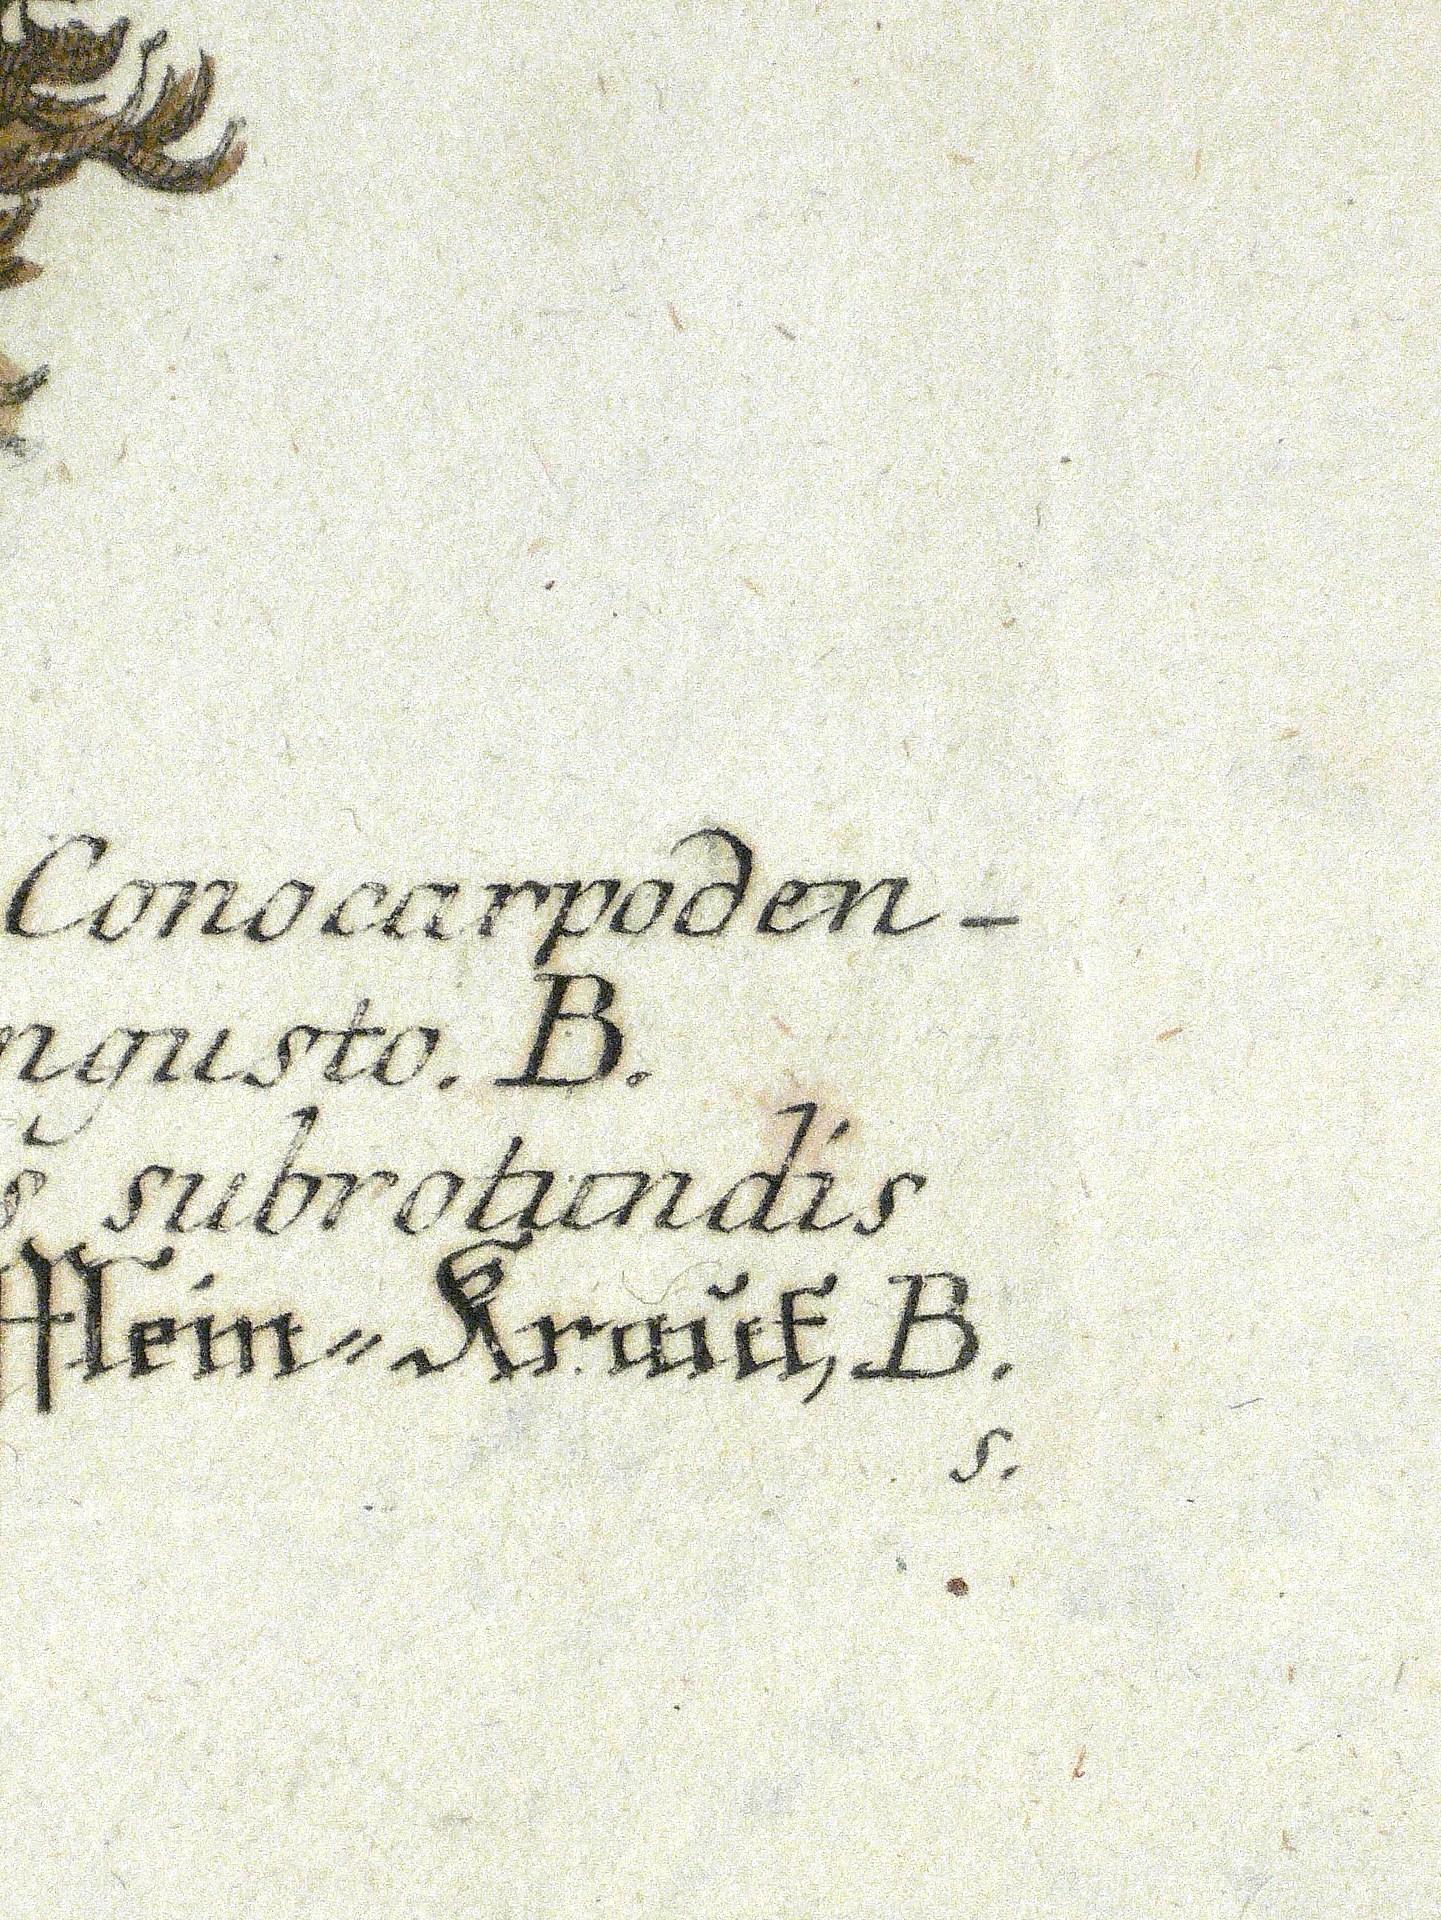 Conocarpoden-
ngusto. B.
s subrotundis
fflein=Kraŭt, B.
s.